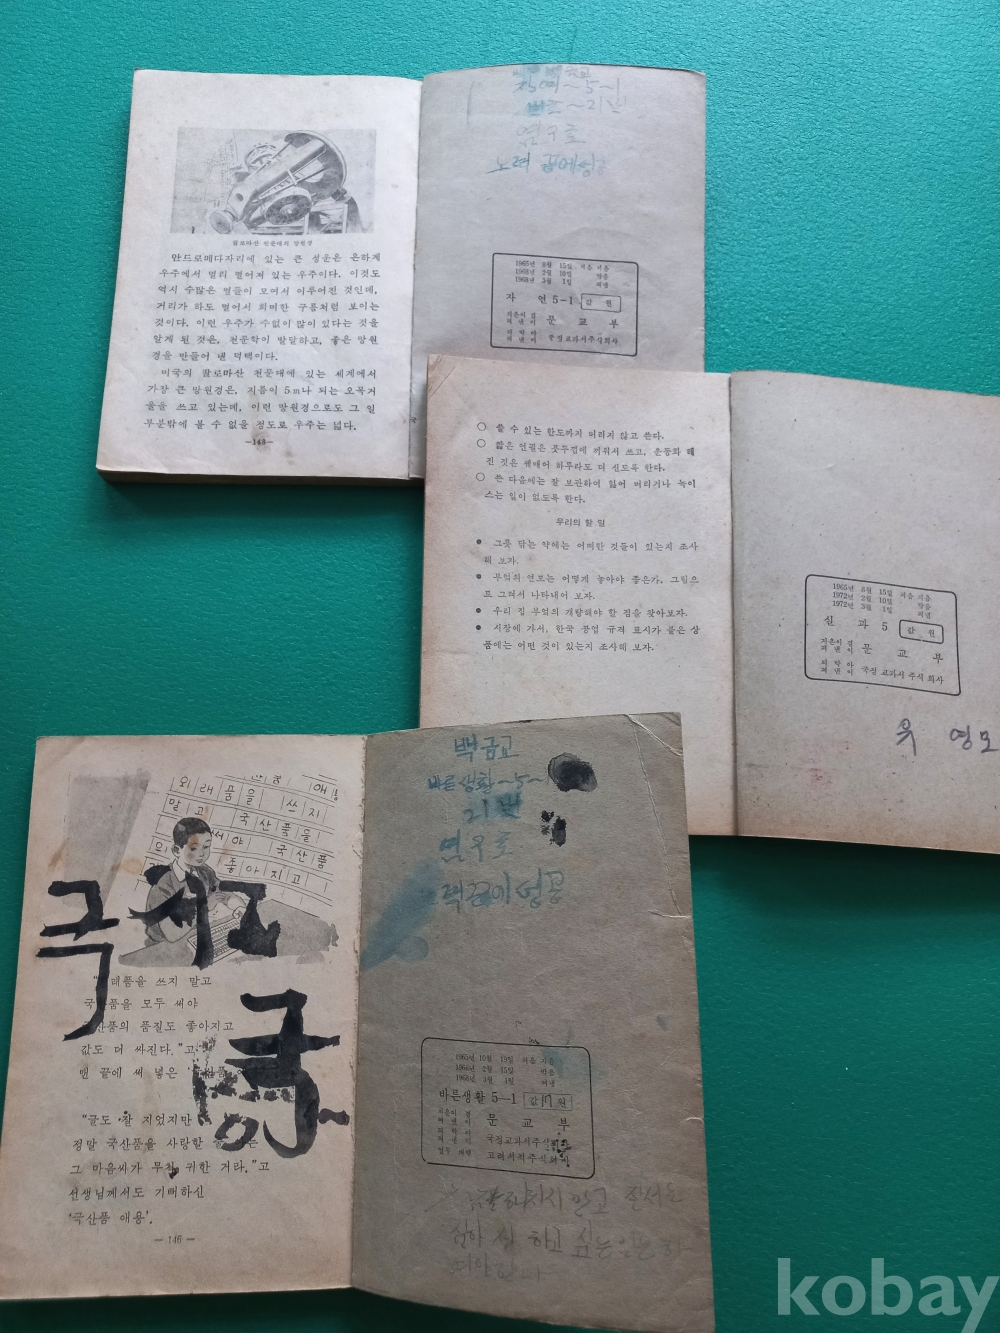 자연~5~1
염우호
노력 끝에 성공
팔로마산 천문대의 망원경
안드로메다자리에 있는 큰 성운은 은하계
우주에서 멀리 떨어져 있는 우주이다. 이것도
역시 수많은 별들이 모여서 이루어진 것인데,
거리가 하도 멀어서 희미한 구름처럼 보이는
것이다. 이런 우주가 수없이 많이 있다는 것을
알게 된 것은, 천문학이 발달하고, 좋은 망원
경을 만들어 낸 덕택이다.
미국의 팔로마산 천문대에 있는 세계에서
가장 큰 망원경은, 지름이 5m나 되는 오목거
울을 쓰고 있는데, 이런 망원경으로도 그 일
부분밖에 볼 수 없을 정도로 우주는 넓다.
—148—
1965년 8월 15일 처음 지음
1968년 2월 10일 박음
1968년 3월 1일 펴냄
자 연 5-1 값 원
지은이 겸
펴낸이 문 교 부
국정교과서주식회사
○ 쓸 수 있는 한도까지 버리지 않고 쓴다.
○ 짧은 연필은 붓두껍에 끼워서 쓰고, 운동화 해
진 것은 꿰매어 하루라도 더 신도록 한다.
○ 쓴 다음에는 잘 보관하여 잃어 버리거나 녹이
스는 일이 없도록 한다.
우리의 할 일
● 그릇 닦는 약에는 어떠한 것들이 있는지 조사
해 보자.
● 부엌의 연모는 어떻게 놓아야 좋은가, 그림으
로 그려서 나타내어 보자.
● 우리 집 부엌의 개량해야 할 점을 찾아보자.
● 시장에 가서, 한국 공업 규격 표시가 붙은 상
품에는 어떤 것이 있는지 조사해 보자.
1965년 8월 15일 처음 지음
1972년 2월 10일 박음
1972년 3월 1일 펴냄
실 과 5 값 원
지은이 겸
펴낸이 문 교 부
국정 교과서 주식 회사
옥 영모
백금교
바른생활~5~1
21번
염우호
노력끝에 성공
외래품을 쓰지
말고 국산품을
써야 국산품
의
좋아지고
국
공
"외래품을 쓰지 말고
국산품을 모두 써야
국산품의 품질도 좋아지고
값도 더 싸진다."고
맨 끝에 써 넣은 '국산품
"글도 잘 지었지만
정말 국산품을 사랑할 줄 아는
그 마음씨가 무척 귀한 거라."고
선생님께서도 기뻐하신
'국산품 애용'.
— 146 —
1965년 10월 19일 처음 지음
1966년 2월 15일 박음
1968년 3월 1일 펴냄
바른생활 5—1 값 17 원
지은이 겸
펴낸이 문 교 부
국정교과서주식회사
고려서적주식회사
말고
하고 싶은
kobay